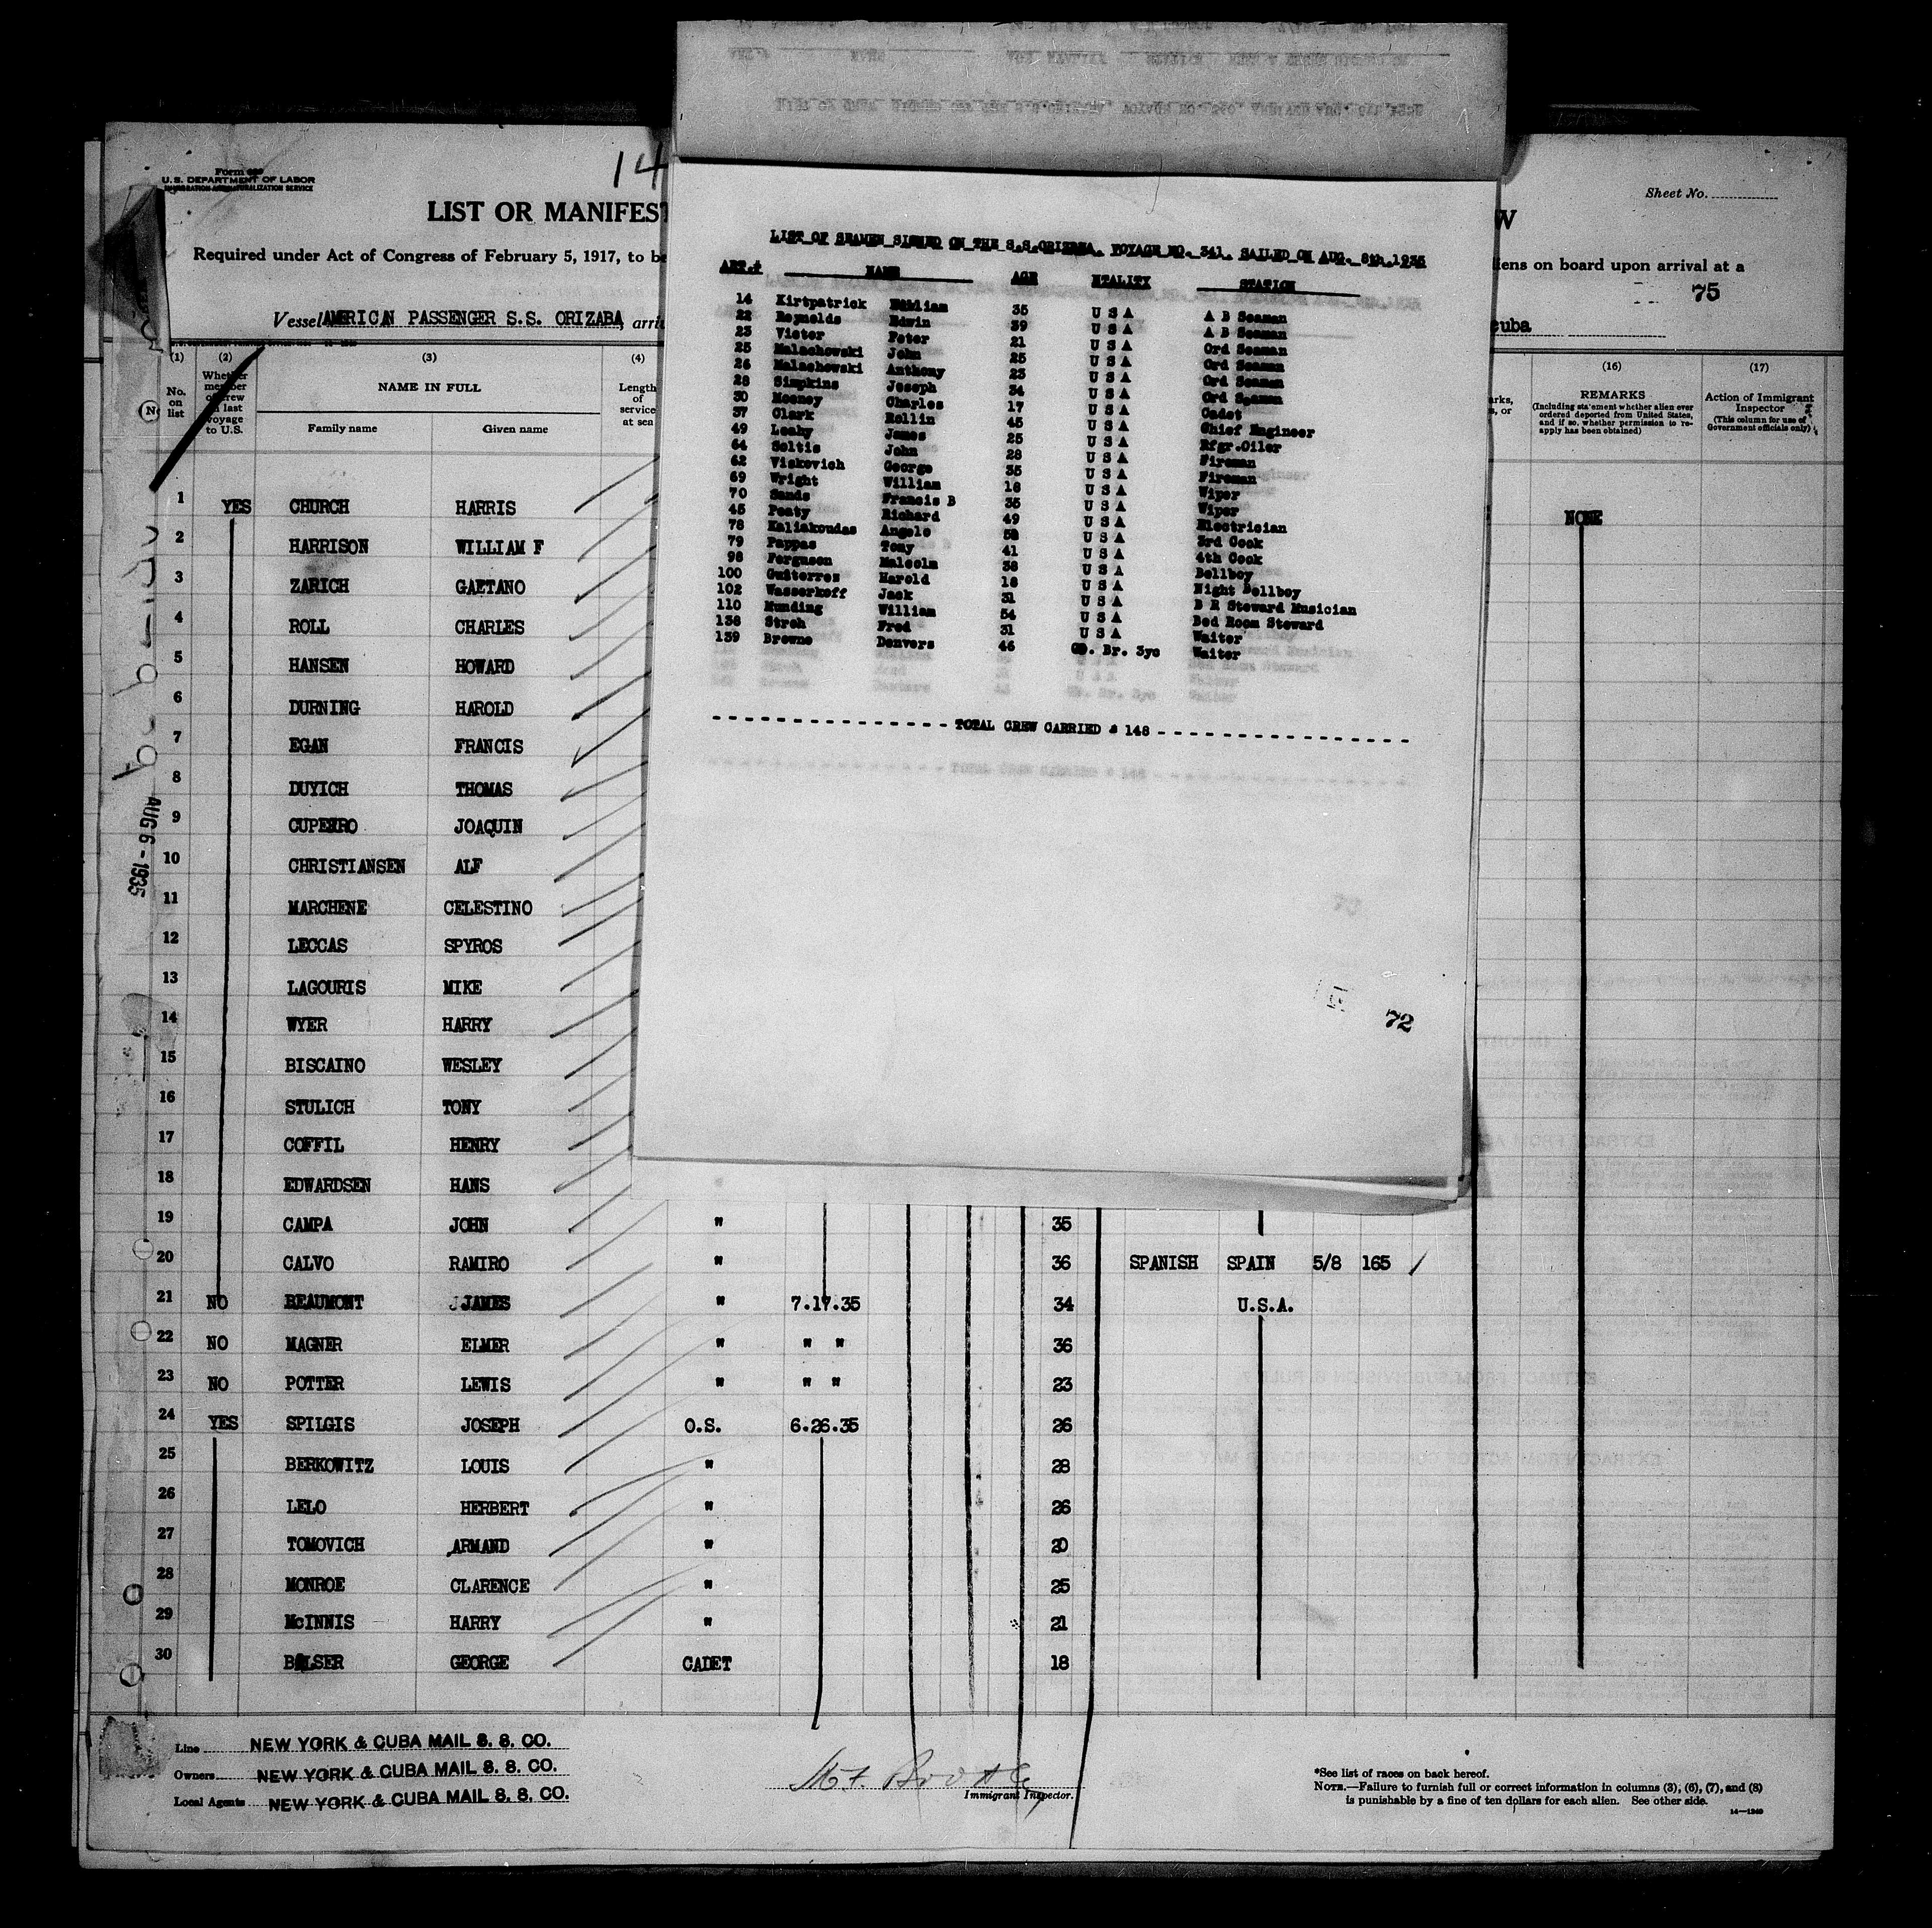 Form
U.S. DEPARTMENT OF LABOR
IMMIGRATION AND NATURALIZATION SERVICE
14
Sheet No.
LIST OR MANIFEST
W
Required under Act of Congress of February 5, 1917, to be
liens on board upon arrival at a
75
Vessel AMERICAN PASSENGER S.S. ORIZABA, arri
cuba
LIST OF SEAMEN SIGNED ON THE S.S.ORIZABA. VOYAGE NO. 341. SAILED ON AUG. 8th.1935
ART.# NAME AGE NTALITY STATION
14 Kirtpatrick William 35 U S A A B Seaman
22 Reynolds Edwin 39 U S A A B Seaman
23 Vieter Peter 21 U S A Ord Seaman
25 Malachowski John 25 U S A Ord Seaman
26 Malachowski Anthony 23 U S A Ord Seaman
28 Simpkins Joseph 34 U S A Ord Seaman
30 Mooney Charles 17 U S A Cadet
37 Clark Rollin 45 U S A Chief Engineer
49 Leahy James 25 U S A Rfgr.Oiler
64 Soltis John 28 U S A Fireman
62 Viskovich George 35 U S A Fireman
69 Wright William 18 U S A Wiper
70 Sands Francis B 35 U S A Wiper
45 Peaty Richard 49 U S A Electrician
78 Kaliakoudas Angelo 52 U S A 3rd Cook
79 Pappas Tony 41 U S A 4th Cook
98 Ferguson Malcolm 38 U S A Bellboy
100 Guiterres Harold 18 U S A Night Bellboy
102 Wasserkoff Jack 31 U S A B R Steward Musician
110 Munding William 54 U S A Bed Room Steward
138 Stroh Fred 31 U S A Waiter
139 Browne Denvers 46 Gt. Br. 3yc Waiter
TOTAL CREW CARRIED # 148
72
(1) (2) (3) (4) (16) (17)
No. on list
Whether member of crew on last voyage to U.S.
NAME IN FULL
Family name Given name
Length of service at sea
REMARKS
(Including statement whether alien ever ordered deported from United States, and if so, whether permission to reapply has been obtained)
Action of Immigrant Inspector
(This column for use of Government officials only)
1 YES CHURCH HARRIS NONE
2 HARRISON WILLIAM F
3 ZARICH GAETANO
4 ROLL CHARLES
5 HANSEN HOWARD
6 DURNING HAROLD
7 EGAN FRANCIS
8 DUYICH THOMAS
9 CUPERRO JOAQUIN
10 CHRISTIANSEN ALF
11 MARCHENE CELESTINO
12 LECCAS SPYROS
13 LAGOURIS MIKE
14 WYER HARRY
15 BISCAINO WESLEY
16 STULICH TONY
17 COFFIL HENRY
18 EDWARDSEN HANS
19 CAMPA JOHN " 35
20 CALVO RAMIRO " 36 SPANISH SPAIN 5/8 165
21 NO BEAUMONT JAMES " 7.17.35 34 U.S.A.
22 NO MAGNER ELMER " " " 36
23 NO POTTER LEWIS " " " 23
24 YES SPILGIS JOSEPH O.S. 6.26.35 26
25 BERKOWITZ LOUIS " 28
26 LELO HERBERT " 26
27 TOMOVICH ARMAND " 20
28 MONROE CLARENCE " 25
29 McINNIS HARRY " 21
30 BALSER GEORGE CADET 18
AUG 6 - 1935
Line NEW YORK & CUBA MAIL S. S. CO.
Owners NEW YORK & CUBA MAIL S. S. CO.
Local Agents NEW YORK & CUBA MAIL S. S. CO.
Immigrant Inspector.
*See list of races on back hereof.
NOTE.—Failure to furnish full or correct information in columns (3), (6), (7), and (8)
is punishable by a fine of ten dollars for each alien. See other side.
14—1240